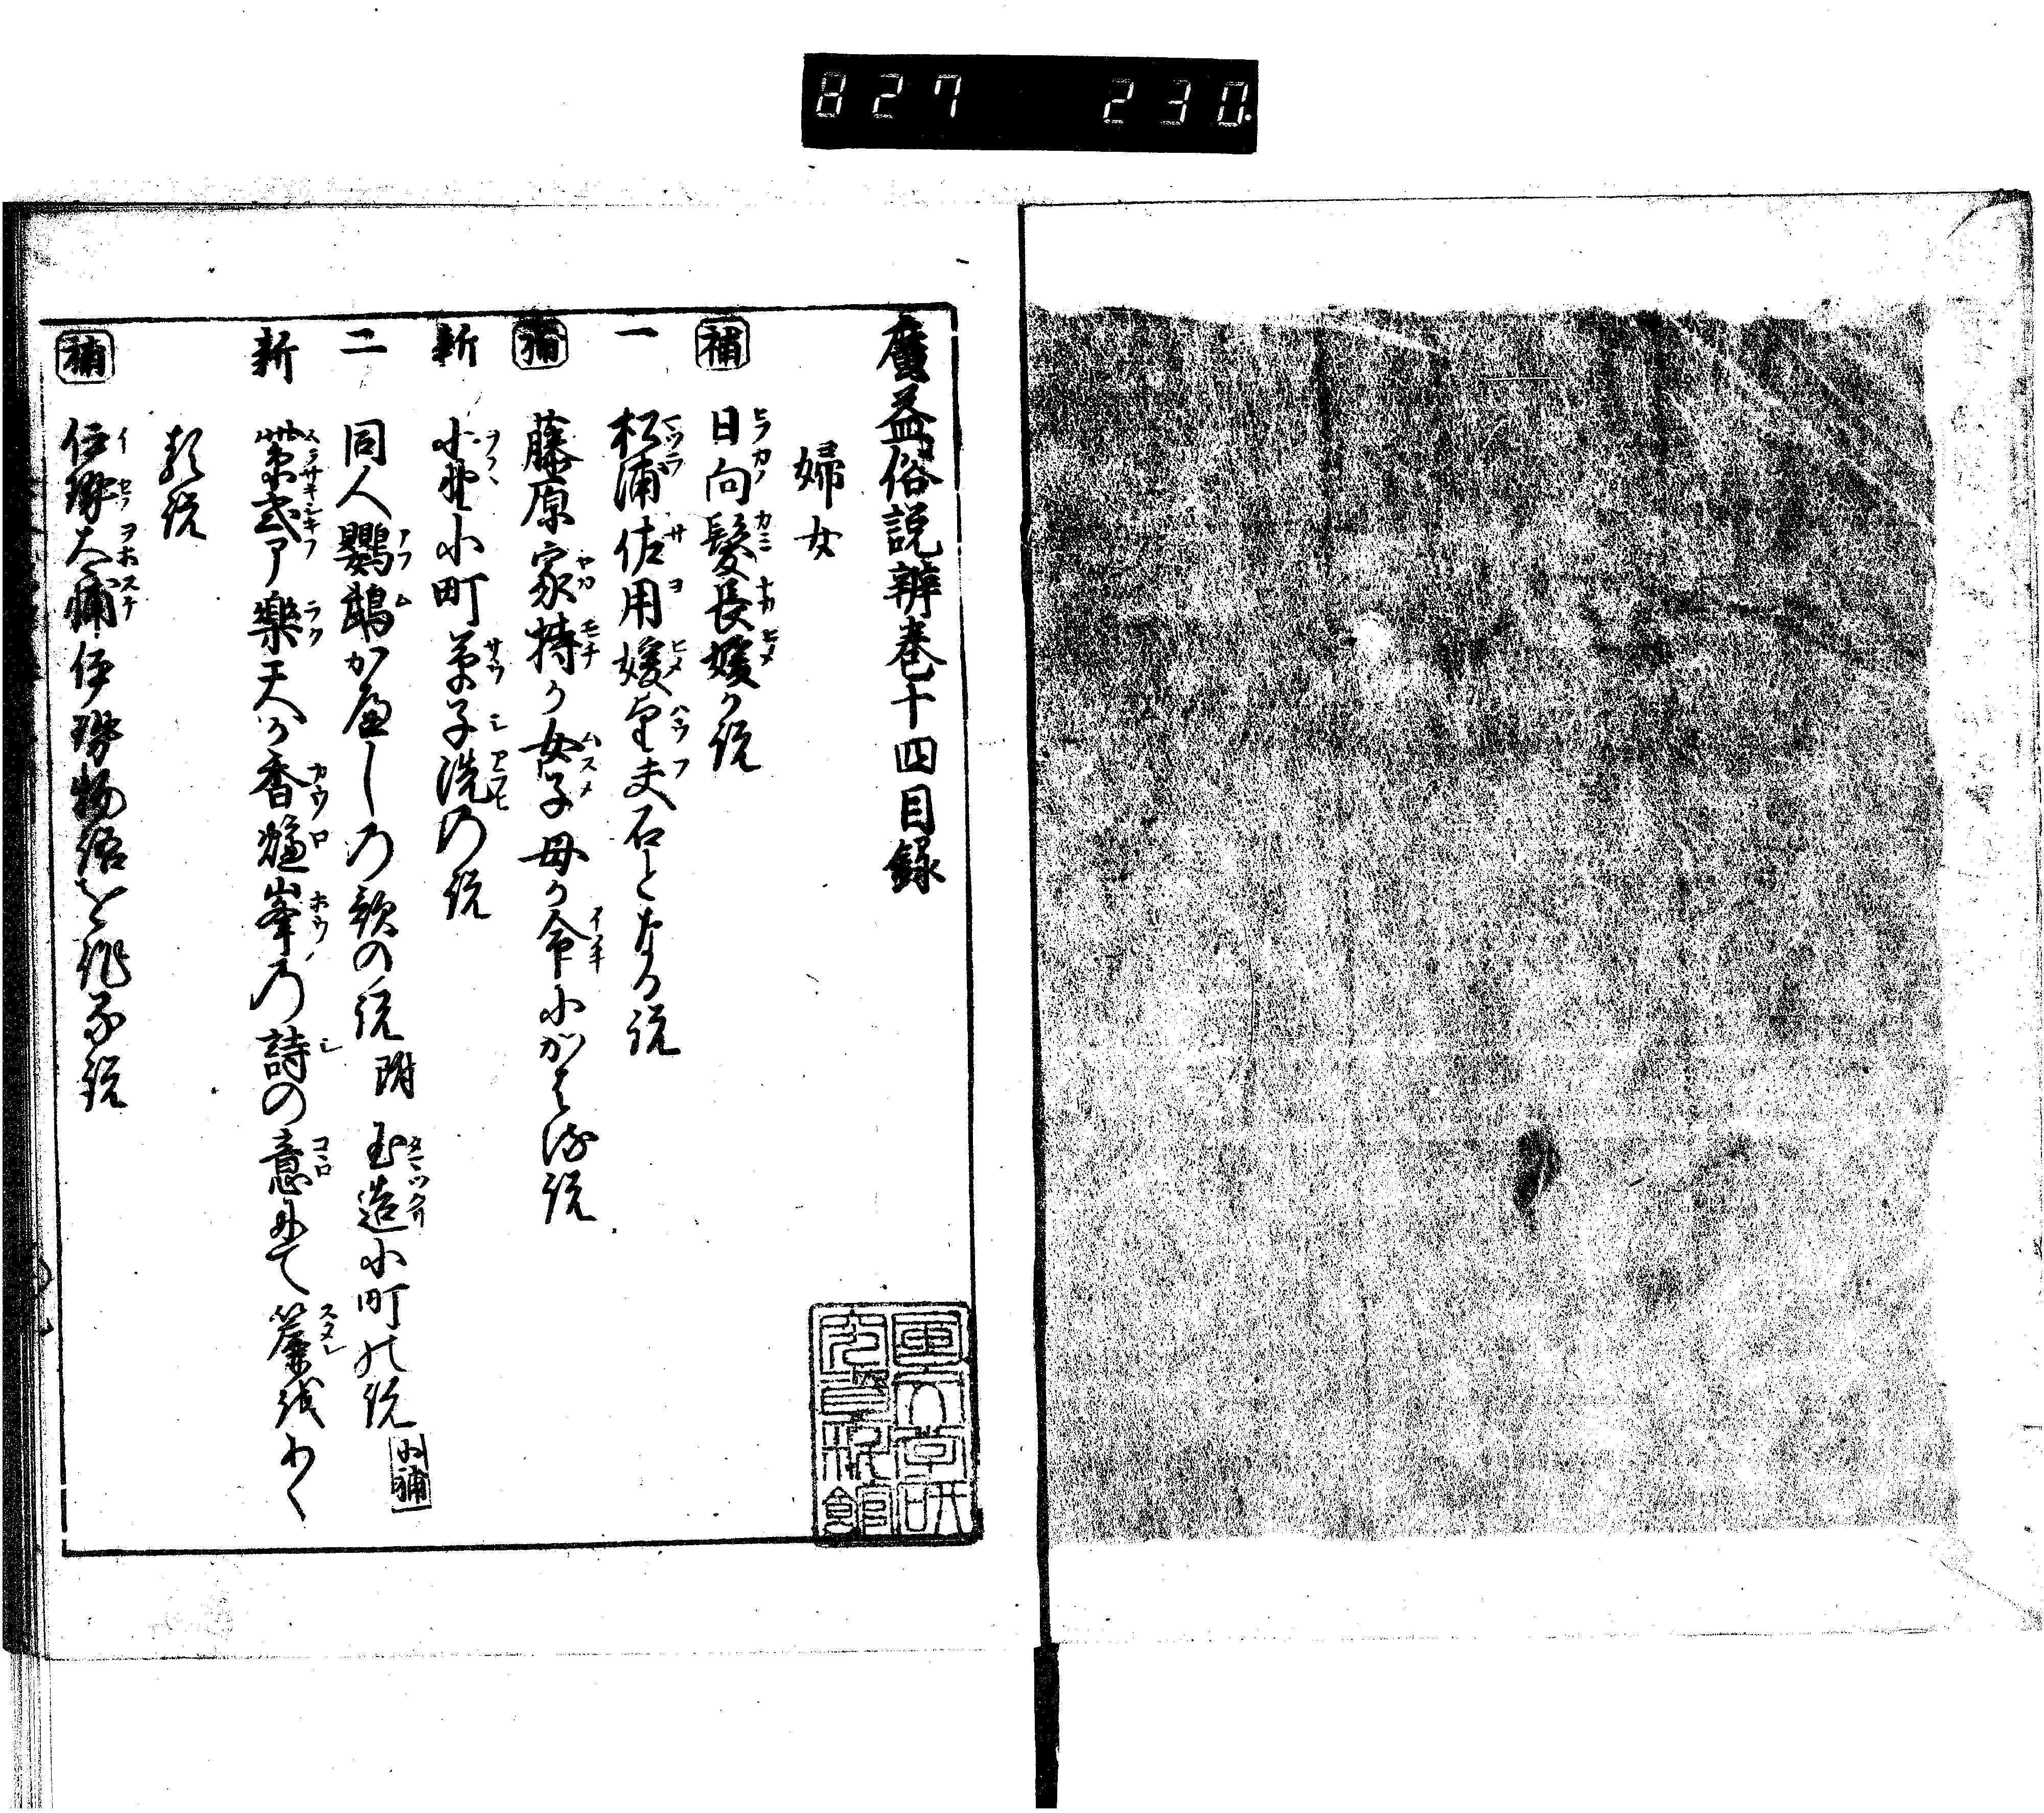 827 230.
廣益俗説辨巻十四目録
婦女
補 日向髪長媛が説
一 松浦佐用媛望夫石となる説
補 藤原家持が女子母が命にかはる説
新 小野小町草子洗の説
二 同人鸚鵡がへしの歌の説 附 玉造小町の説 補
新 紫式部楽天が香爐峯の詩の意にて簾をまく
説
補 伊勢大輔伊勢物語を作る説